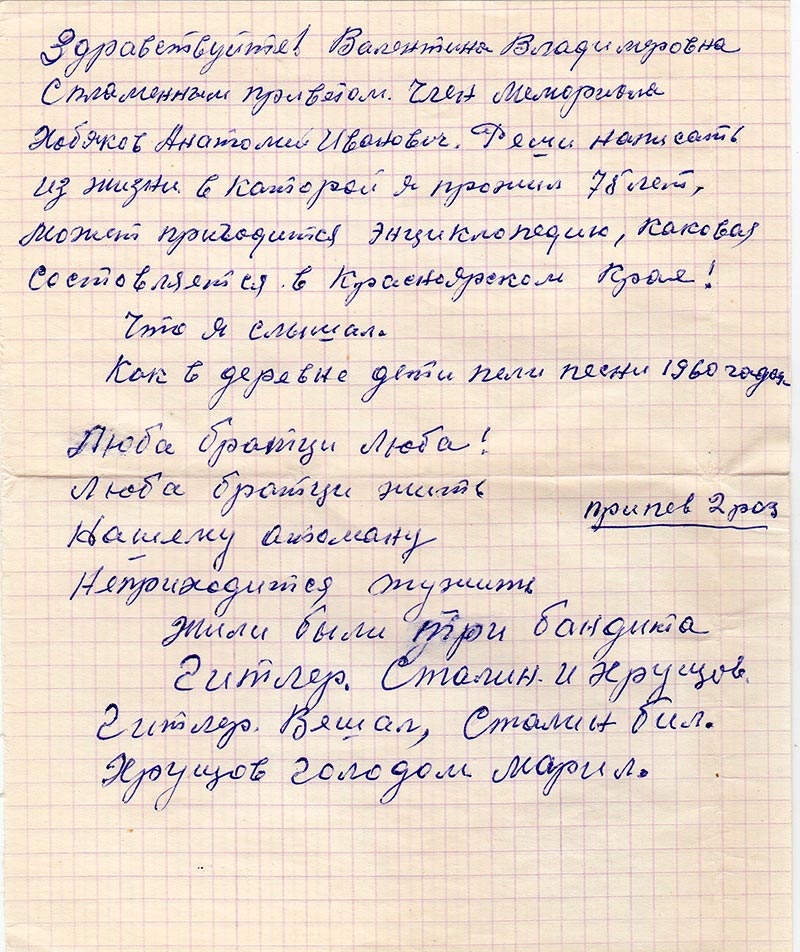 Здравствуйте! Валентина Владимеровна
С пламенным приветом. Член Мемориала
Хобяков Анатолий Иванович. Решил написать
из жизни в каторой я прожил 78 лет,
может пригодится энциклопедию, каковая
состовляется в Красноярском Крае!
Что я слышал.
Как в деревне дети пели песни 1960 годах
Люба братци люба!
Люба братци жить
припев 2 раз
Нашему атоману
Неприходится тужить
Жили были три бандита
Гитлер. Сталин и Хрущов.
Гитлер. Вешал, Сталин бил.
Хрущов голодом марил.